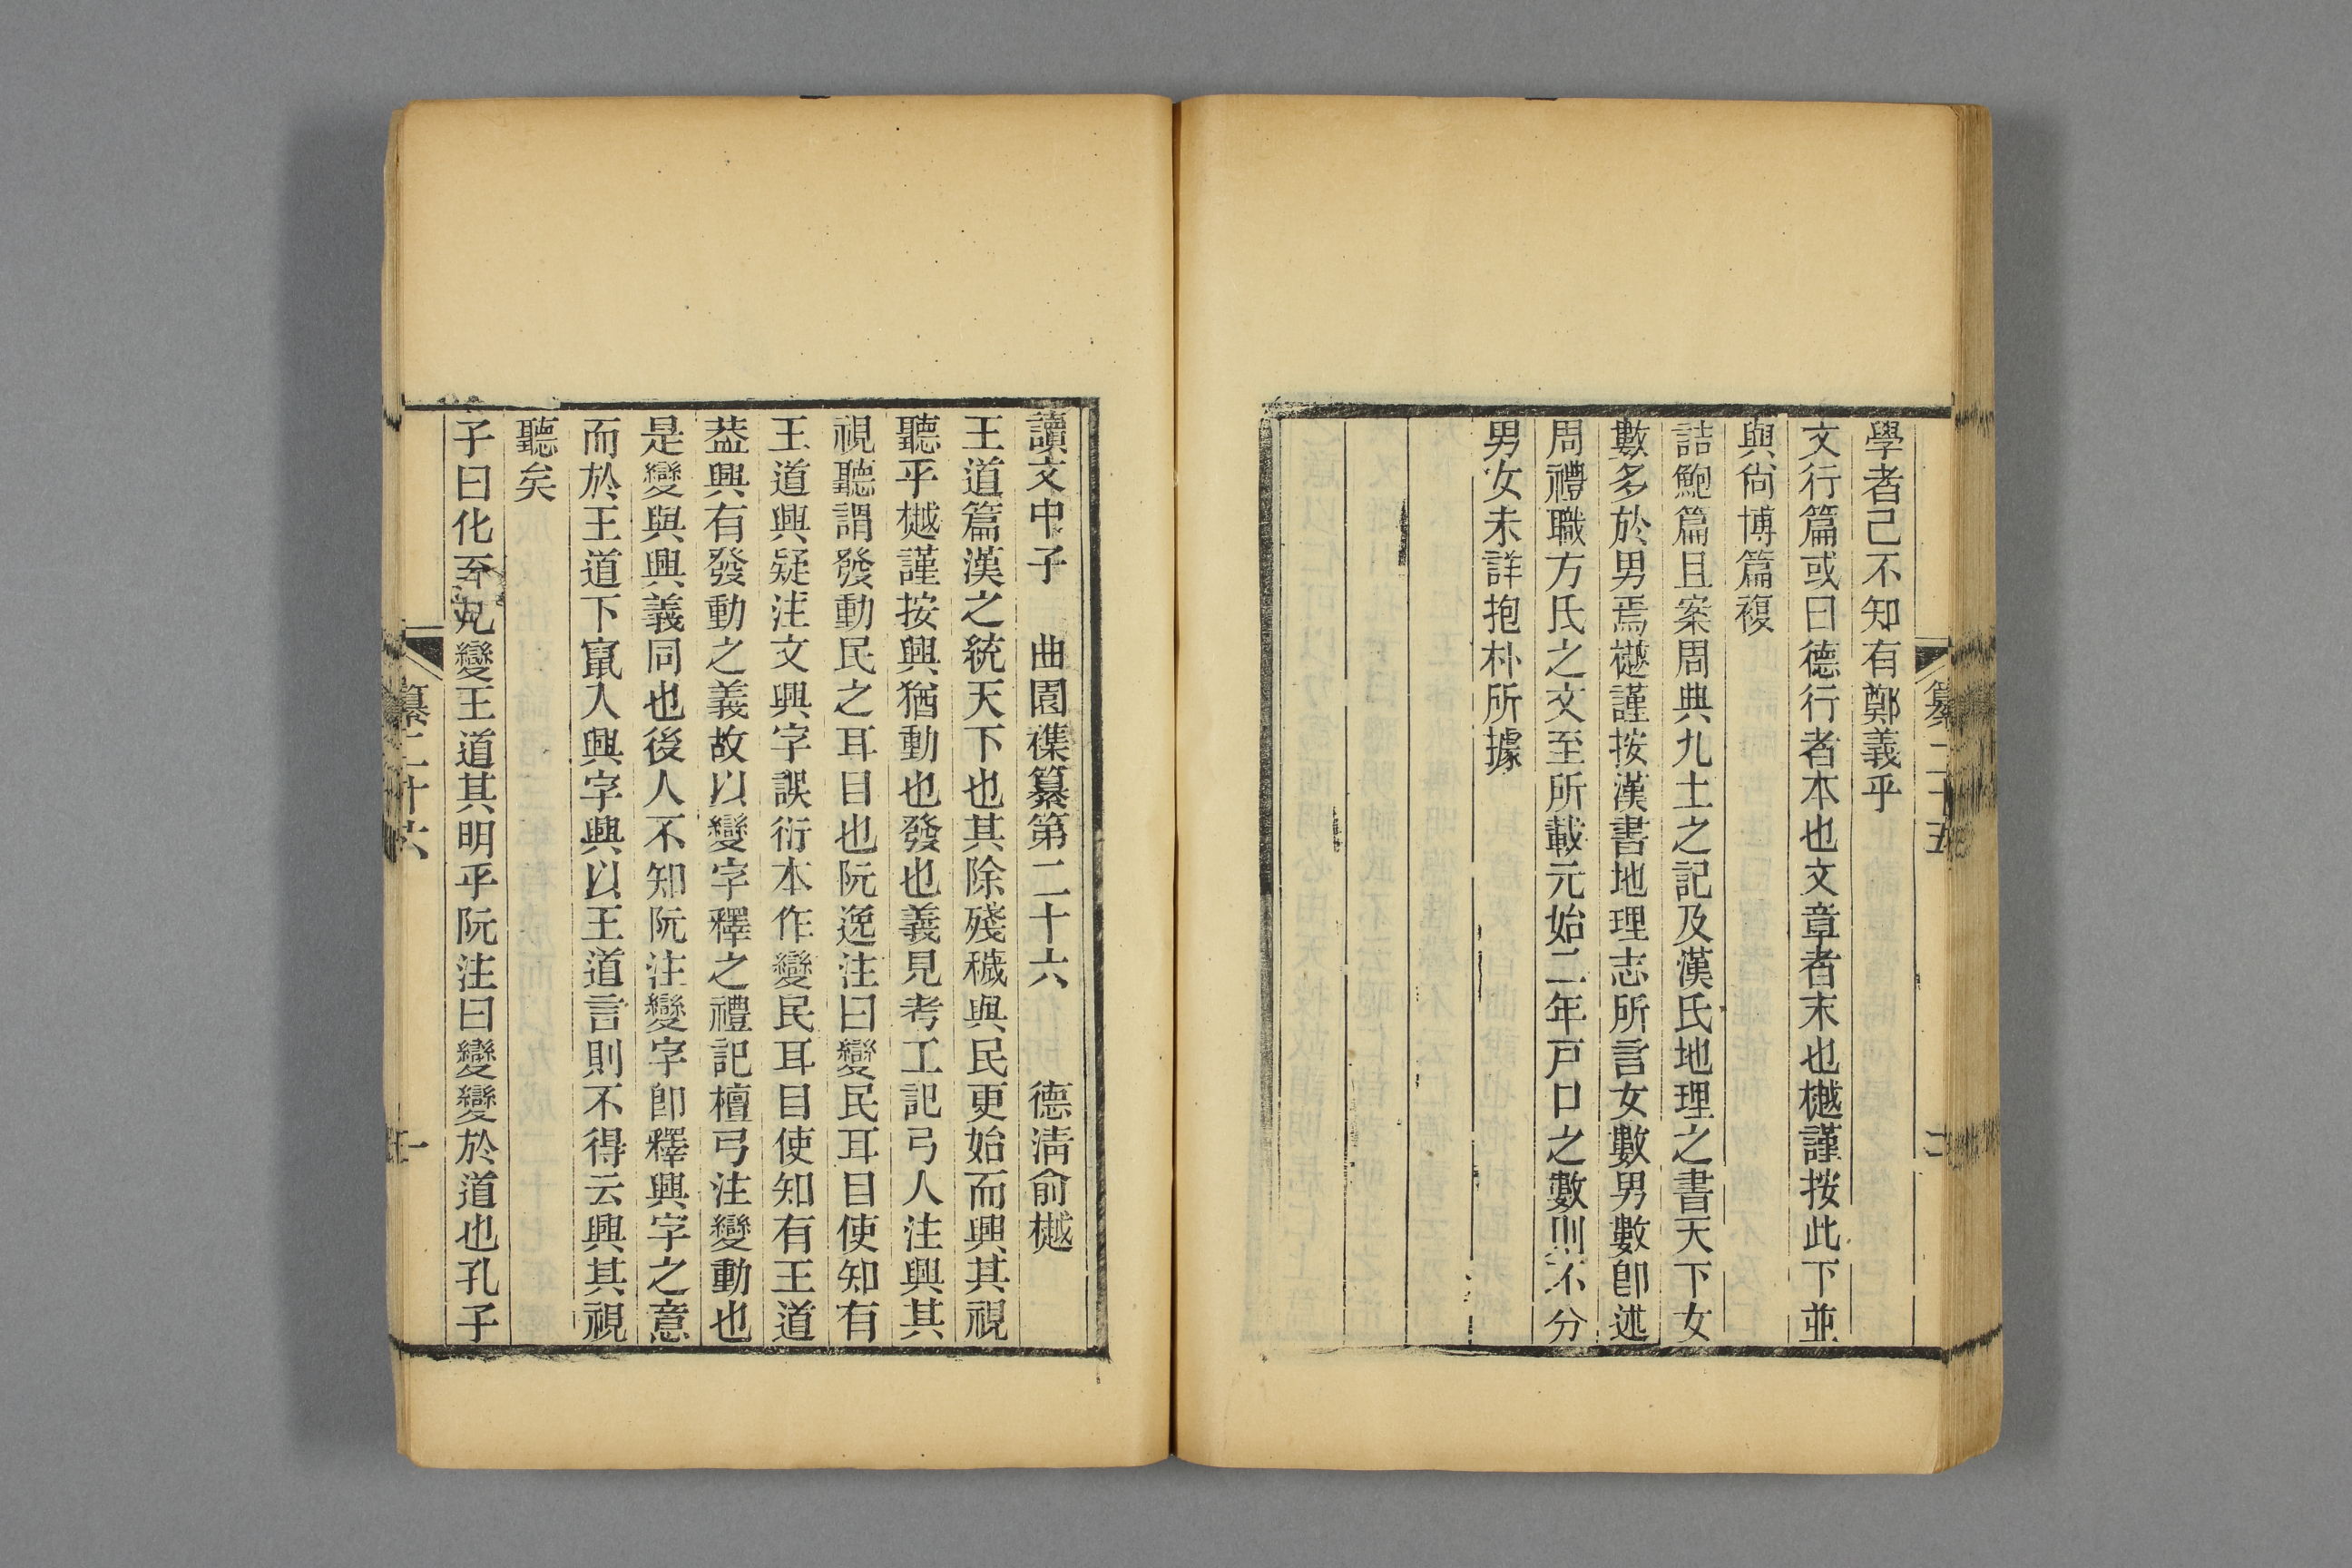 學者己不知有鄭義乎
文行篇或曰德行者本也文章者末也樾謹按此下並
與尙博篇複
詰鮑篇且案周典九土之記及漢氏地理之書天下女
數多於男焉樾謹按漢書地理志所言女數男數卽述
周禮職方氏之文至所載元始二年戸口之數則不分
男女未詳抱朴所據
纂二十五
二
讀文中子 曲園襍纂第二十六 德淸俞樾
王道篇漢之統天下也其除殘穢與民更始而興其視
聽乎樾謹按興猶動也發也義見考工記弓人注興其
視聽謂發動民之耳目也阮逸注曰變民耳目使知有
王道興疑注文興字誤衍本作變民耳目使知有王道
葢興有發動之義故以變字釋之禮記檀弓注變動也
是變與興義同也後人不知阮注變字卽釋興字之意
而於王道下竄入興字興以王道言則不得云興其視
聽矣
子曰化至九變王道其明乎阮注曰變變於道也孔子
纂二十六
一